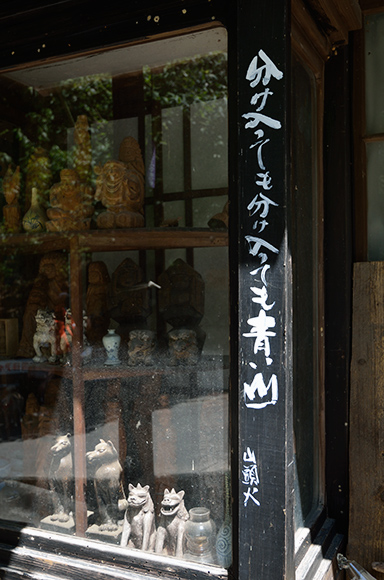 分け入つても分け入つても青い山
山頭火